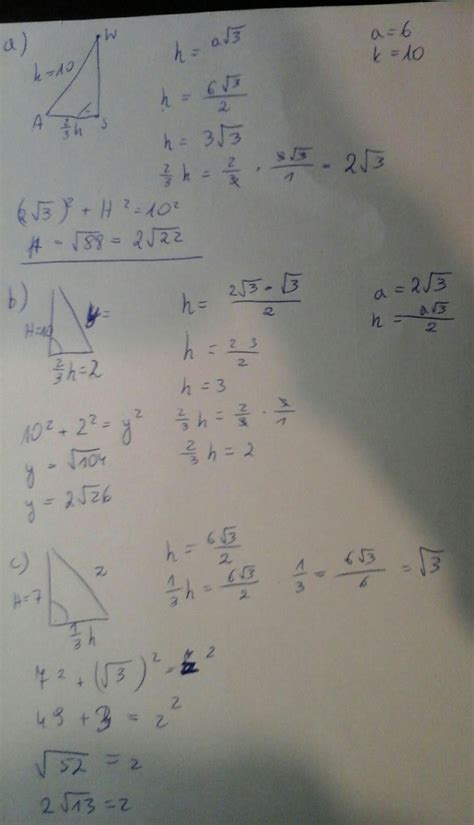 a)
W
k=10
A
2/3 h
S
h = a√3
a = 6
k = 10
h = 6√3/2
h = 3√3
2/3 h = 2/3 · 3√3/1 = 2√3
(2√3)² + H² = 10²
H = √88 = 2√22
b)
H=10
y=
2/3 h = 2
h = 2√3 · √3/2
a = 2√3
h = a√3/2
h = 2 3/2
h = 3
2/3 h = 2/3 · 3/1
2/3 h = 2
10² + 2² = y²
y = √104
y = 2√26
c)
H=7
z
1/3 h
h = 6√3/2
1/3 h = 6√3/2 · 1/3 = 6√3/6 = √3
7² + (√3)² = z²
49 + 3 = z²
√52 = z
2√13 = z